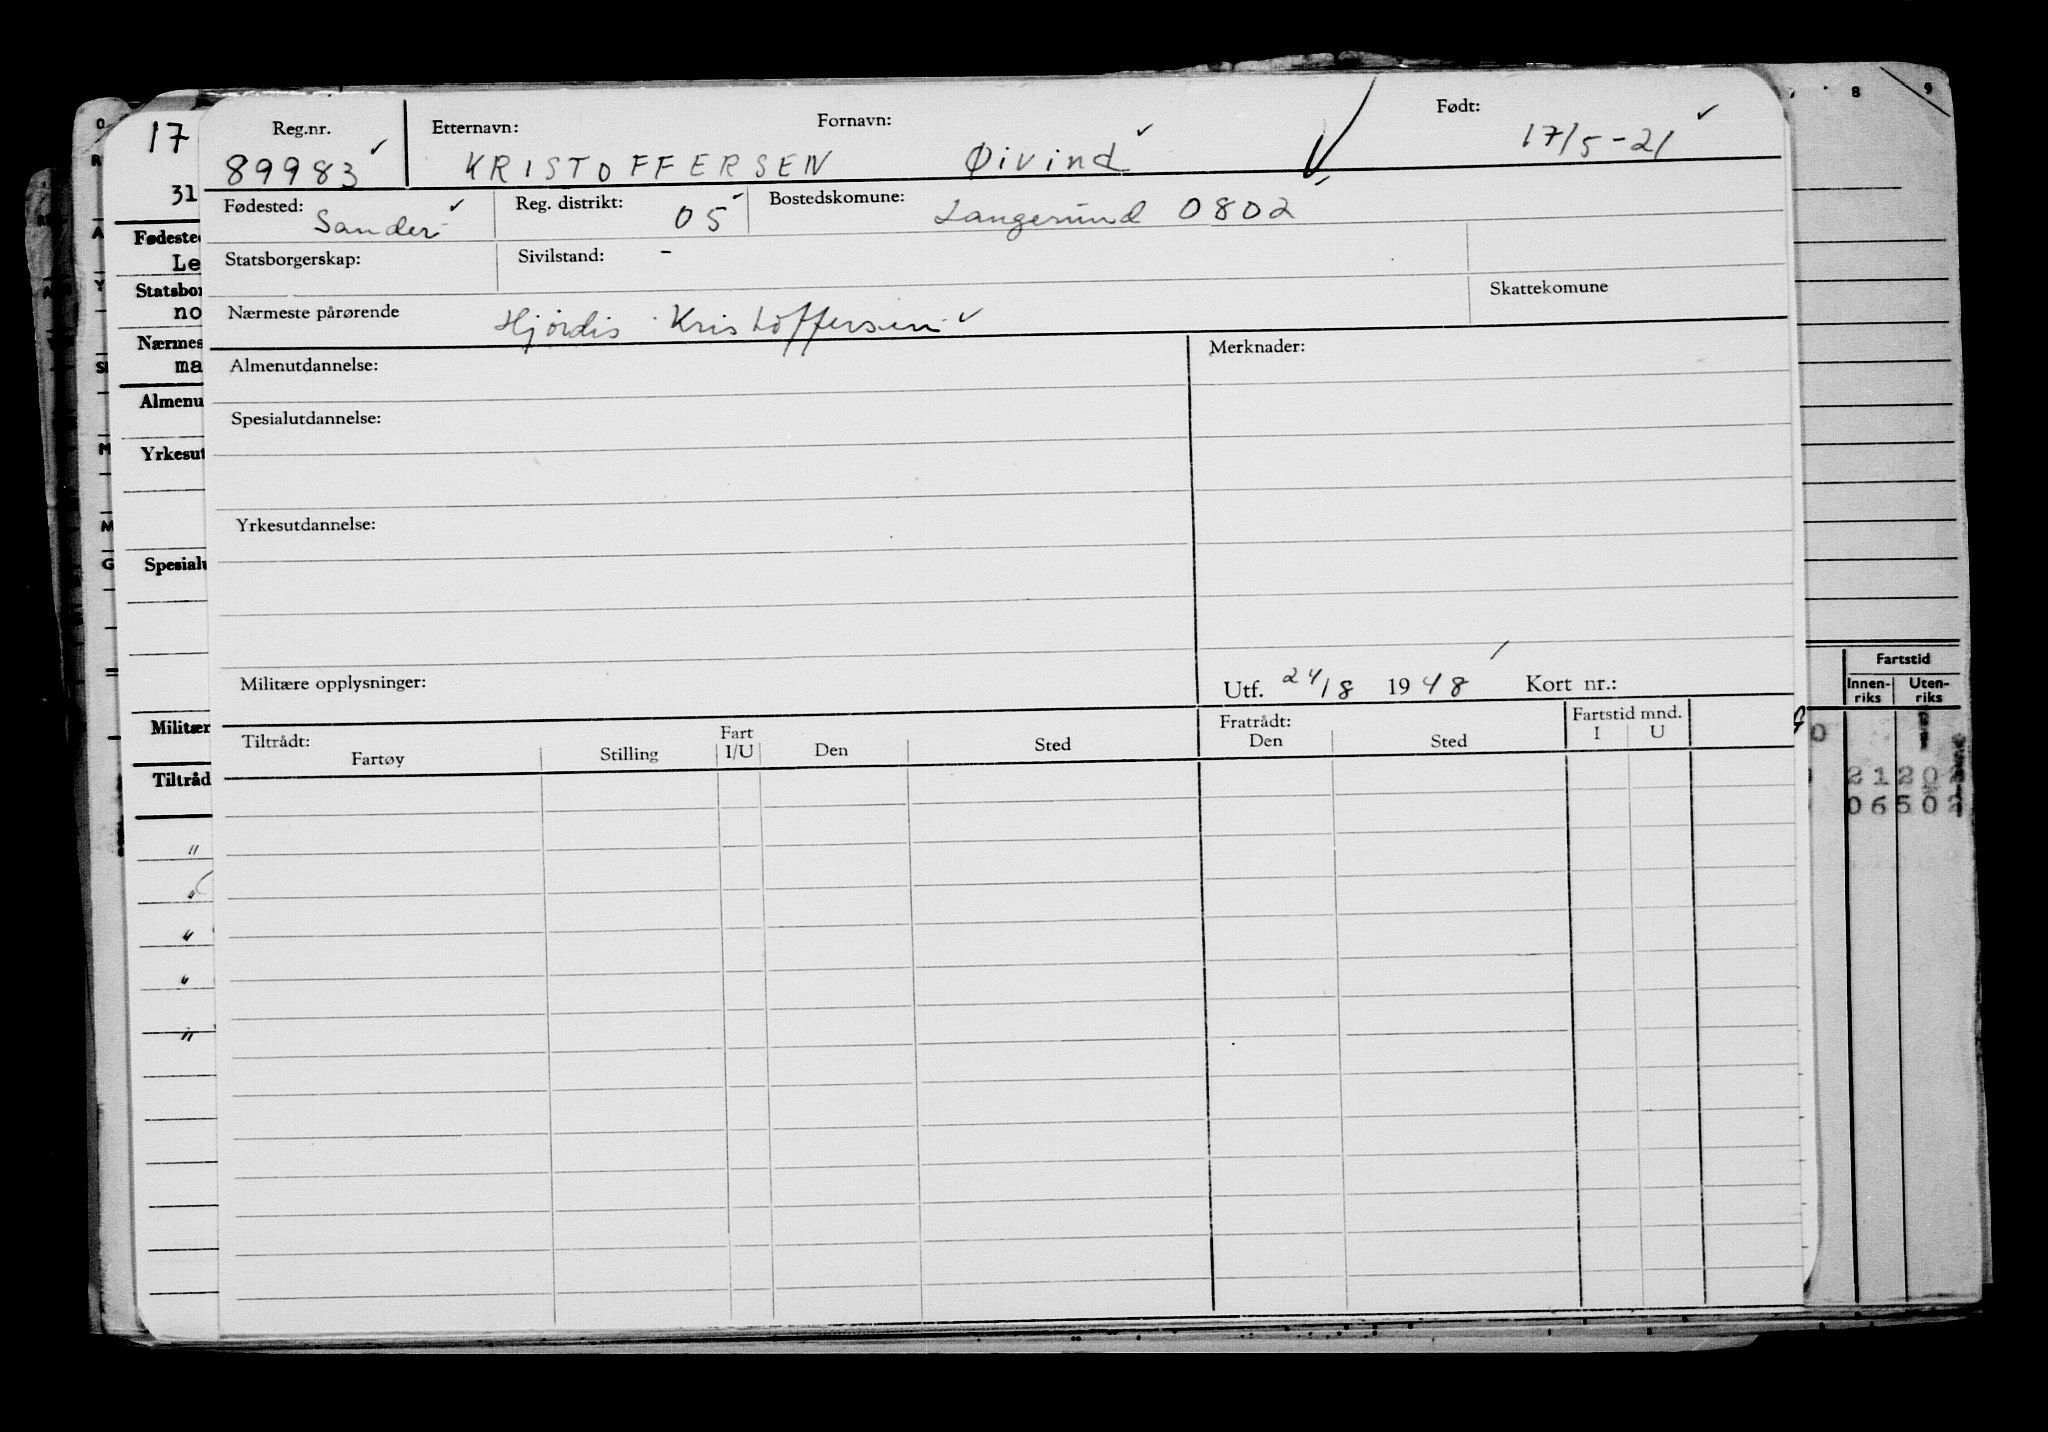 17
31
Reg.nr. Etternavn: Fornavn: Født:
89983 KRISTOFFERSEN Øivind 17/5-21
Fødested: Sander Reg. distrikt: 05 Bostedskomune: Langesund 0802
Statsborgerskap: Sivilstand: -
Skattekomune
Nærmeste pårørende Hjördis Kristoffersen
Almenutdannelse: Merknader:
Spesialutdannelse:
Yrkesutdannelse:
Militære opplysninger: Utf. 24/8 1948 Kort nr.:
Tiltrådt: Fart Fratrådt: Fartstid mnd.
Fartøy Stilling I/U Den Sted Den Sted I U
Fødested
Le
Statsbor
no
Nærmes
ma
Almenu
Yrkesut
Spesialu
Militær
Tiltråd
"
"
"
"
"
8 9
Fartstid
Innen- Uten-
riks riks
2120
06502